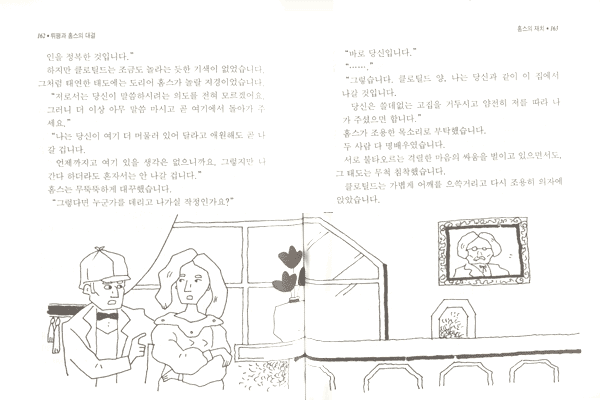 162 • 뤼팽과 홈스의 대결
인을 정복한 것입니다."
하지만 클로틸드는 조금도 놀라는 듯한 기색이 없었습니다.
그처럼 태연한 태도에는 도리어 홈스가 놀랄 지경이었습니다.
"저로서는 당신이 말씀하시려는 의도를 전혀 모르겠어요.
그러니 더 이상 아무 말씀 마시고 곧 여기에서 돌아가 주
세요."
"나는 당신이 여기 더 머물러 있어 달라고 애원해도 곧 나
갈 겁니다.
언제까지고 여기 있을 생각은 없으니까요. 그렇지만 나
간다 하더라도 혼자서는 안 나갈 겁니다."
홈스는 무뚝뚝하게 대꾸했습니다.
"그렇다면 누군가를 데리고 나가실 작정인가요?"
홈스의 재치 • 163
"바로 당신입니다."
"……."
"그렇습니다. 클로틸드 양, 나는 당신과 같이 이 집에서
나갈 것입니다.
당신은 쓸데없는 고집을 거두시고 얌전히 저를 따라 나
가 주셨으면 합니다."
홈스가 조용한 목소리로 부탁했습니다.
두 사람 다 명배우였습니다.
서로 불타오르는 격렬한 마음의 싸움을 벌이고 있으면서도,
그 태도는 무척 침착했습니다.
클로틸드는 가볍게 어깨를 으쓱거리고 다시 조용히 의자에
앉았습니다.